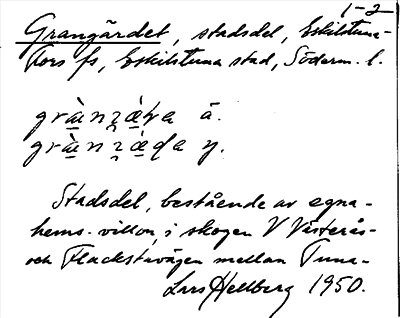 1-2
Grangärdet, stadsdel, Eskilstuna-
Fors fs, Eskilstuna stad, Söderm. l.
ä.
y.
Stadsdel, bestående av egna-
hems-villor, i skogen V Västerås-
och Flackstavägen mellan Tuna-
Lars Hellberg 1950.